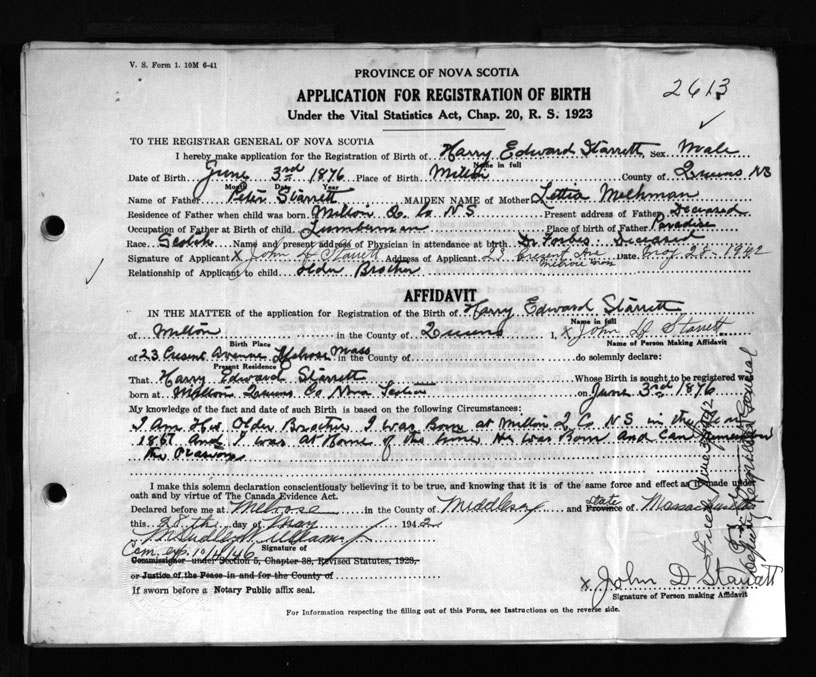 V. S. Form 1. 10M 6-41
PROVINCE OF NOVA SCOTIA
2613
APPLICATION FOR REGISTRATION OF BIRTH
Under the Vital Statistics Act, Chap. 20, R. S. 1923
TO THE REGISTRAR GENERAL OF NOVA SCOTIA
I hereby make application for the Registration of Birth of Harry Edward Starrett Sex Male
Name in full
Date of Birth June 3rd 1876 Place of Birth Milton County of Queens NS
Month Date Year
Name of Father Peter Starrett MAIDEN NAME of Mother Lettia
Residence of Father when child was born Milton Q. Co N S Present address of Father Deceased
Occupation of Father at Birth of child Lumberman Place of birth of Father Paradise
Race Scotch Name and present address of Physician in attendance at birth Dr Forbes Deceased
Signature of Applicant x John D Starrett Address of Applicant 23 Cresent Ave Date May 28 1942
Melrose Mass
Relationship of Applicant to child older Brother
AFFIDAVIT
IN THE MATTER of the application for Registration of the Birth of Harry Edward Starrett
Name in full
of Milton in the County of Queens I, x John D Starrett
Birth Place Name of Person Making Affidavit
of 23 Cresent Avenue Melrose Mass in the County of do solemnly declare:
Present Residence
That Harry Edward Starrett Whose Birth is sought to be registered was
born at Milton Queens Co Nova Scotia on June 3rd 1876
My knowledge of the fact and date of such Birth is based on the following Circumstances:
I Am His Older Brother I was Born at Milton Q Co N S in the
1867 And I was at Home of the time He was Born and Can
the
I make this solemn declaration conscientiously believing it to be true, and knowing that it is of the same force and effect as if made under
oath and by virtue of The Canada Evidence Act.
Declared before me at Melrose in the County of Middlesex and State Province of Massachusetts
this 28th day of May 1942
Com. exp. 10/11/46 Signature of
Commissioner under Section 5, Chapter 38, Revised Statutes, 1923,
or Justice of the Peace in and for the County of
x John D Starrett
Signature of Person making Affidavit
If sworn before a Notary Public affix seal.
For Information respecting the filling out of this Form, see Instructions on the reverse side.
Deputy Registrar General